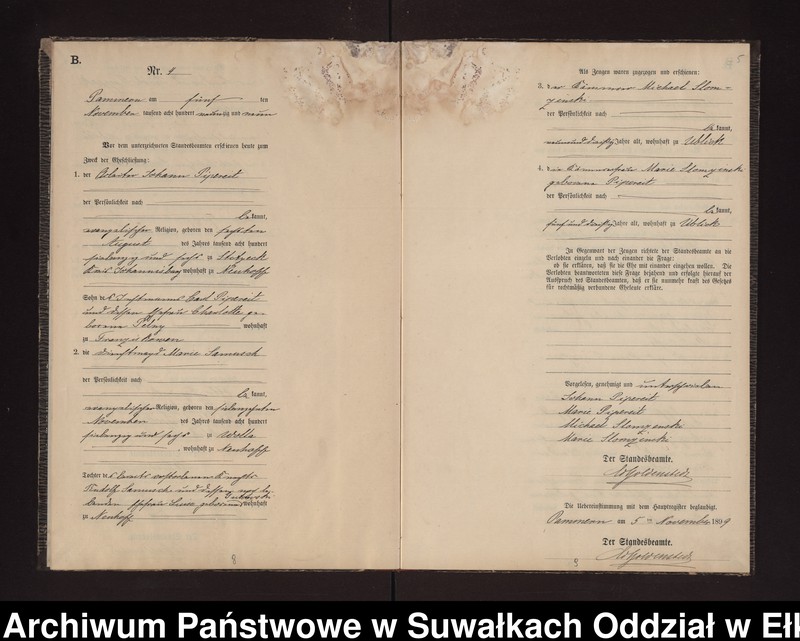 B.
Nr. 9
am fünf ten
November tausend acht hundert neunzig und neun
Vor dem unterzeichneten Standesbeamten erschienen heute zum
Zweck der Eheschließung:
1. der Johann Pipereit
der Persönlichkeit nach
be kannt,
evangelischer Religion, geboren den sechsten
August des Jahres tausend acht hundert
siebenzig und sechs zu
Kreis Johannisburg wohnhaft zu Neuhoff
Sohn des Carl Pipereit
und dessen Ehefrau Charlotte ge-
borene wohnhaft
zu
2. die Dienstmagd Marie
der Persönlichkeit nach
be kannt,
evangelischer Religion, geboren den siebenzehnten
November des Jahres tausend acht hundert
siebenzig und sechs zu
, wohnhaft zu Neuhoff
Tochter des bereits verstorbenen
und dessen noch le-
benden Ehefrau geborene wohnhaft
zu Neuhoff
8
5
Als Zeugen waren zugezogen und erschienen:
3. der Michael Slom-
zenski
der Persönlichkeit nach
be kannt,
neun und dreißig Jahre alt, wohnhaft zu Ublick
4. die Marie Slomzenski
geborene Pipereit
der Persönlichkeit nach
be kannt,
fünf und dreißig Jahre alt, wohnhaft zu Ublick
In Gegenwart der Zeugen richtete der Standesbeamte an die
Verlobten einzeln und nach einander die Frage:
ob sie erklären, daß sie die Ehe mit einander eingehen wollen. Die
Verlobten beantworteten diese Frage bejahend und erfolgte hierauf der
Ausspruch des Standesbeamten, daß er sie nunmehr kraft des Gesetzes
für rechtmäßig verbundene Eheleute erkläre.
Vorgelesen, genehmigt und unterschrieben
Johann Pipereit
Marie Pipereit
Michael Slomzenski
Marie Slomzenski
Der Standesbeamte.
Die Uebereinstimmung mit dem Hauptregister beglaubigt.
am 5 ten November 1899
Der Standesbeamte.
Archiwum Państwowe w Suwałkach Oddział w Eł